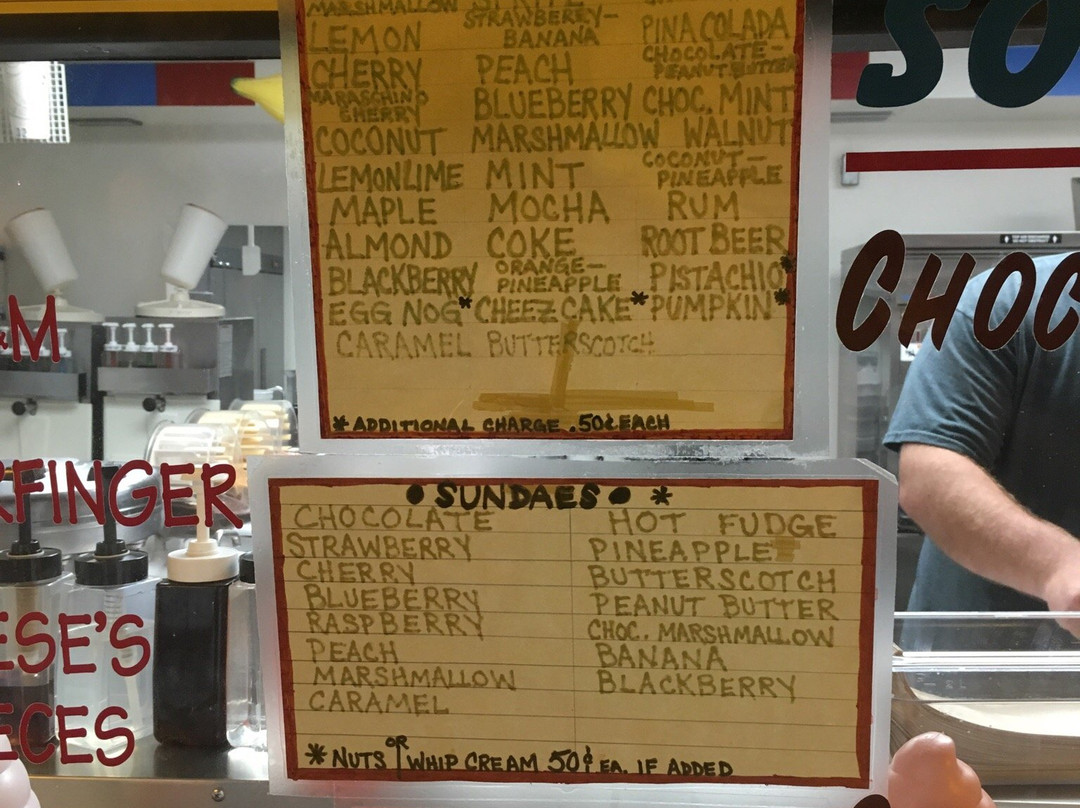 MARSHMALLOW SPRITE
LEMON STRAWBERRY-BANANA PINA COLADA
CHERRY PEACH CHOCOLATE-PEANUT BUTTER
MARASCHINO CHERRY BLUEBERRY CHOC. MINT
COCONUT MARSHMALLOW WALNUT
LEMONLIME MINT COCONUT-PINEAPPLE
MAPLE MOCHA RUM
ALMOND COKE ROOT BEER
BLACKBERRY ORANGE-PINEAPPLE PISTACHIO*
EGG NOG* CHEEZCAKE* PUMPKIN*
CARAMEL BUTTERSCOTCH
* ADDITIONAL CHARGE .50¢ EACH
• SUNDAES • *
CHOCOLATE HOT FUDGE
STRAWBERRY PINEAPPLE
CHERRY BUTTERSCOTCH
BLUEBERRY PEANUT BUTTER
RASPBERRY CHOC. MARSHMALLOW
PEACH BANANA
MARSHMALLOW BLACKBERRY
CARAMEL
* NUTS OR WHIP CREAM 50¢ EA. IF ADDED
&M
RFINGER
ESE'S
ECES
SO
CHOC